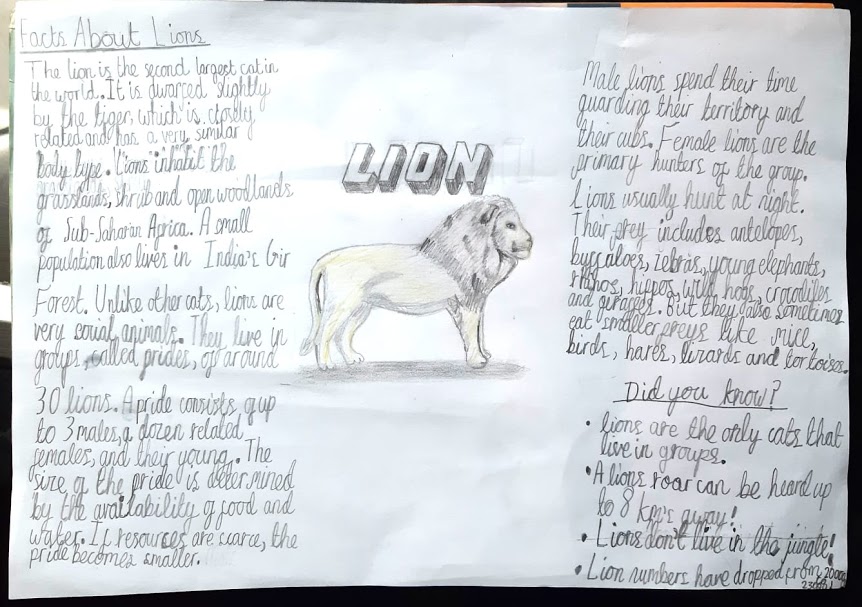 Facts About Lions
The lion is the second largest cat in
the world. It is dwarfed slightly
by the tiger, which is closely
related and has a very similar
body type. Lions inhabit the
grasslands, shrub and open woodlands
of Sub-Saharan Africa. A small
population also lives in India's Gir
Forest. Unlike other cats, lions are
very social animals. They live in
groups, called prides, of around
30 lions. A pride consists of up
to 3 males, a dozen related
females, and their young. The
size of the pride is determined
by the availability of food and
water. If resources are scarce, the
pride becomes smaller.
LION
Male lions spend their time
guarding their territory and
their cubs. Female lions are the
primary hunters of the group.
Lions usually hunt at night.
Their prey includes antelopes,
buffaloes, zebras, young elephants,
rhinos, hippos, wild hogs, crocodiles
and giraffes. But they also sometimes
eat smaller preys like mice,
birds, hares, lizards and tortoises.
Did you know?
• lions are the only cats that
live in groups.
• A lions roar can be heard up
to 8 km's away!
• Lions don't live in the jungle!
• Lion numbers have dropped from